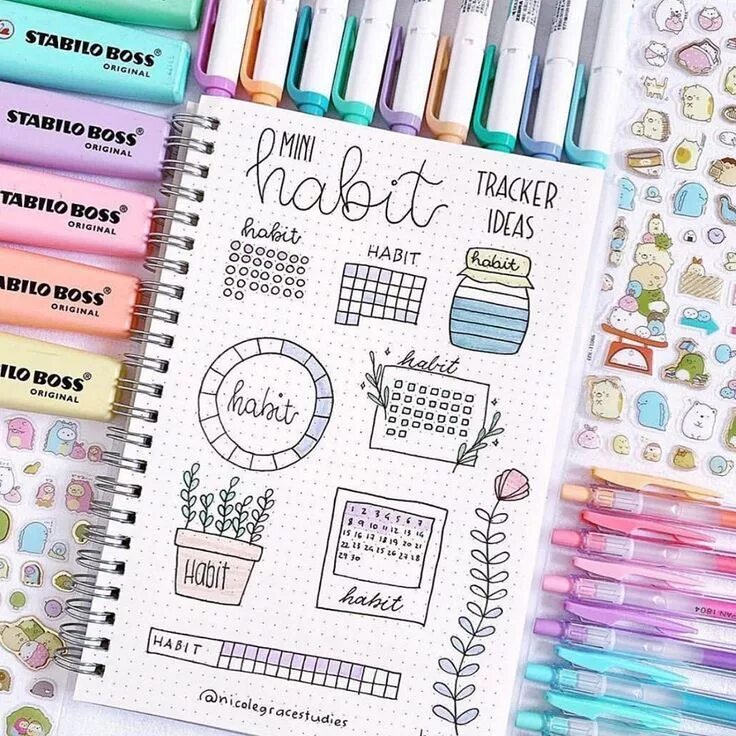 STABILO BOSS®
ORIGINAL
STABILO BOSS®
ORIGINAL
TABILO BOSS®
ORIGINAL
ABILO BOSS®
ORIGINAL
ILO BOSS®
ORIGINAL
MINI
habit
TRACKER
IDEAS
habit
HABIT
habit
habit
habit
HABIT
1 2 3 4 5 6 7
8 9 10 11 12 13 14
15 16 17 18 19 20 21
22 23 24 25 26 27 28
29 30
habit
HABIT
@nicolegracestudies
PAN 1804